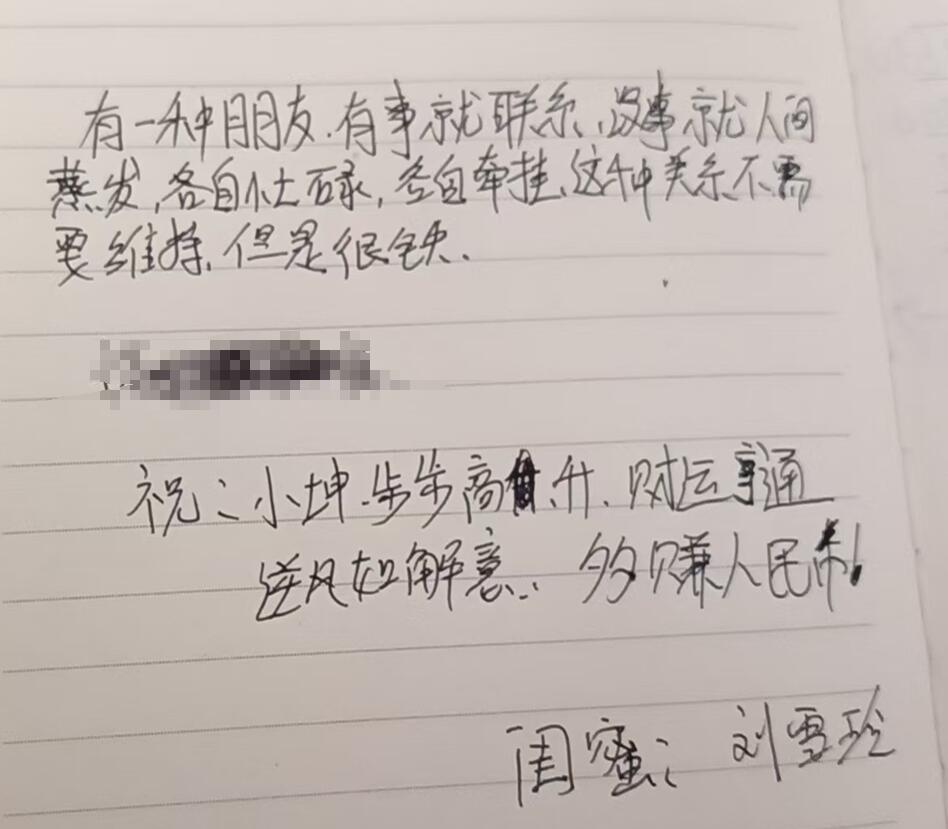 有一种朋友.有事就联系,没事就人间
蒸发,各自忙碌,各自牵挂,这种关系不需
要维持,但是很铁.
祝:小坤.步步高升.财运亨通
逆风如解意.多赚人民币!
闺蜜:刘雪玲